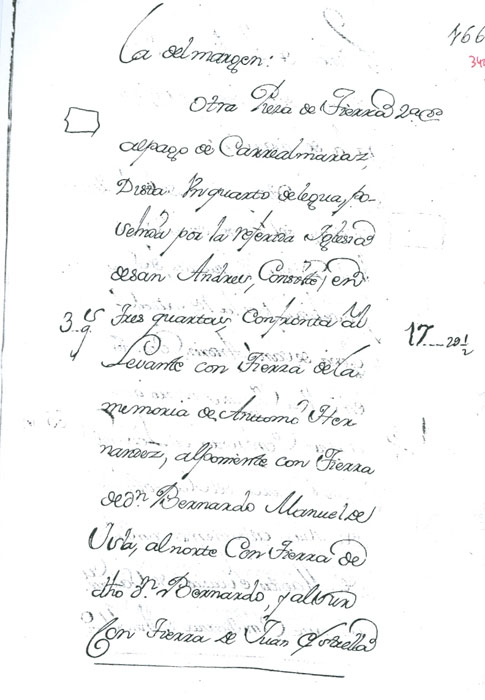 766
340
La del margen:
Otra Pieza de Tierra
al pago de Carrealmaraz,
Dista Un quarto de legua, po-
seheda por la referida Iglesia
de san Andres, Consiste en
3. qs tres quartas Confronta al
17....29 1/2
Levante con Tierra de la
memoria de Anttonio Her
nandez, al poniente con Tierra
de dn. Bernardo Manuel de
Usla, al norte Con Tierra de
dho dn. Bernardo, y al sur
Con Tierra de Juan Estrella